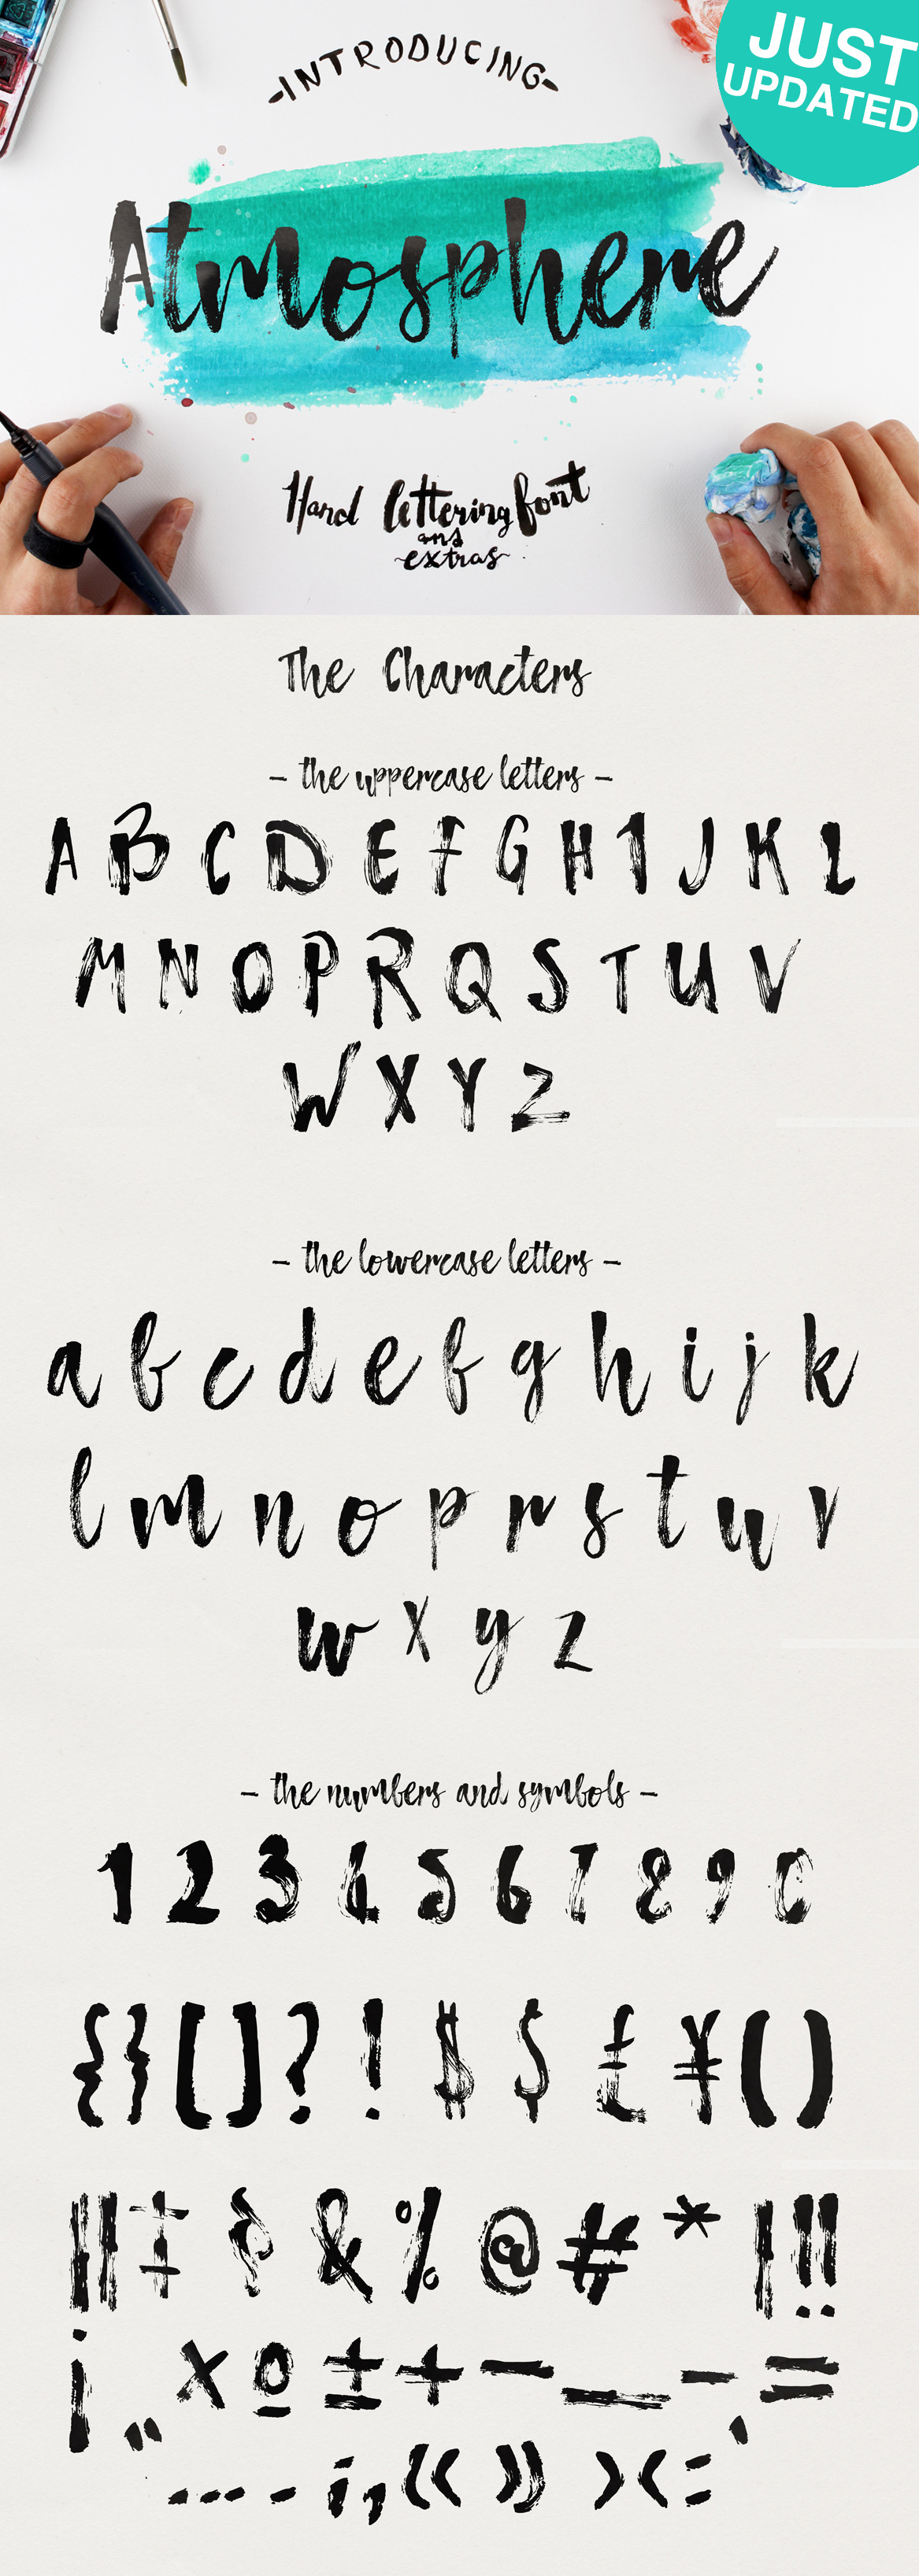 -INTRODUCING-
JUST
UPDATED
Atmosphere
Hand lettering font
and
extras
The Characters
– the uppercase letters –
A B C D E F G H I J K L
M N O P R Q S T U V
W X Y Z
– the lowercase letters –
a b c d e f g h i j k
l m n o p r s t u v
w x y z
– the numbers and symbols –
1 2 3 4 5 6 7 8 9 0
{ } [ ] ? ! $ $ £ ¥ ( )
& % @ # * | !!
¡ „ × º ± + – _ - = '
… - ; , « » › ‹ :